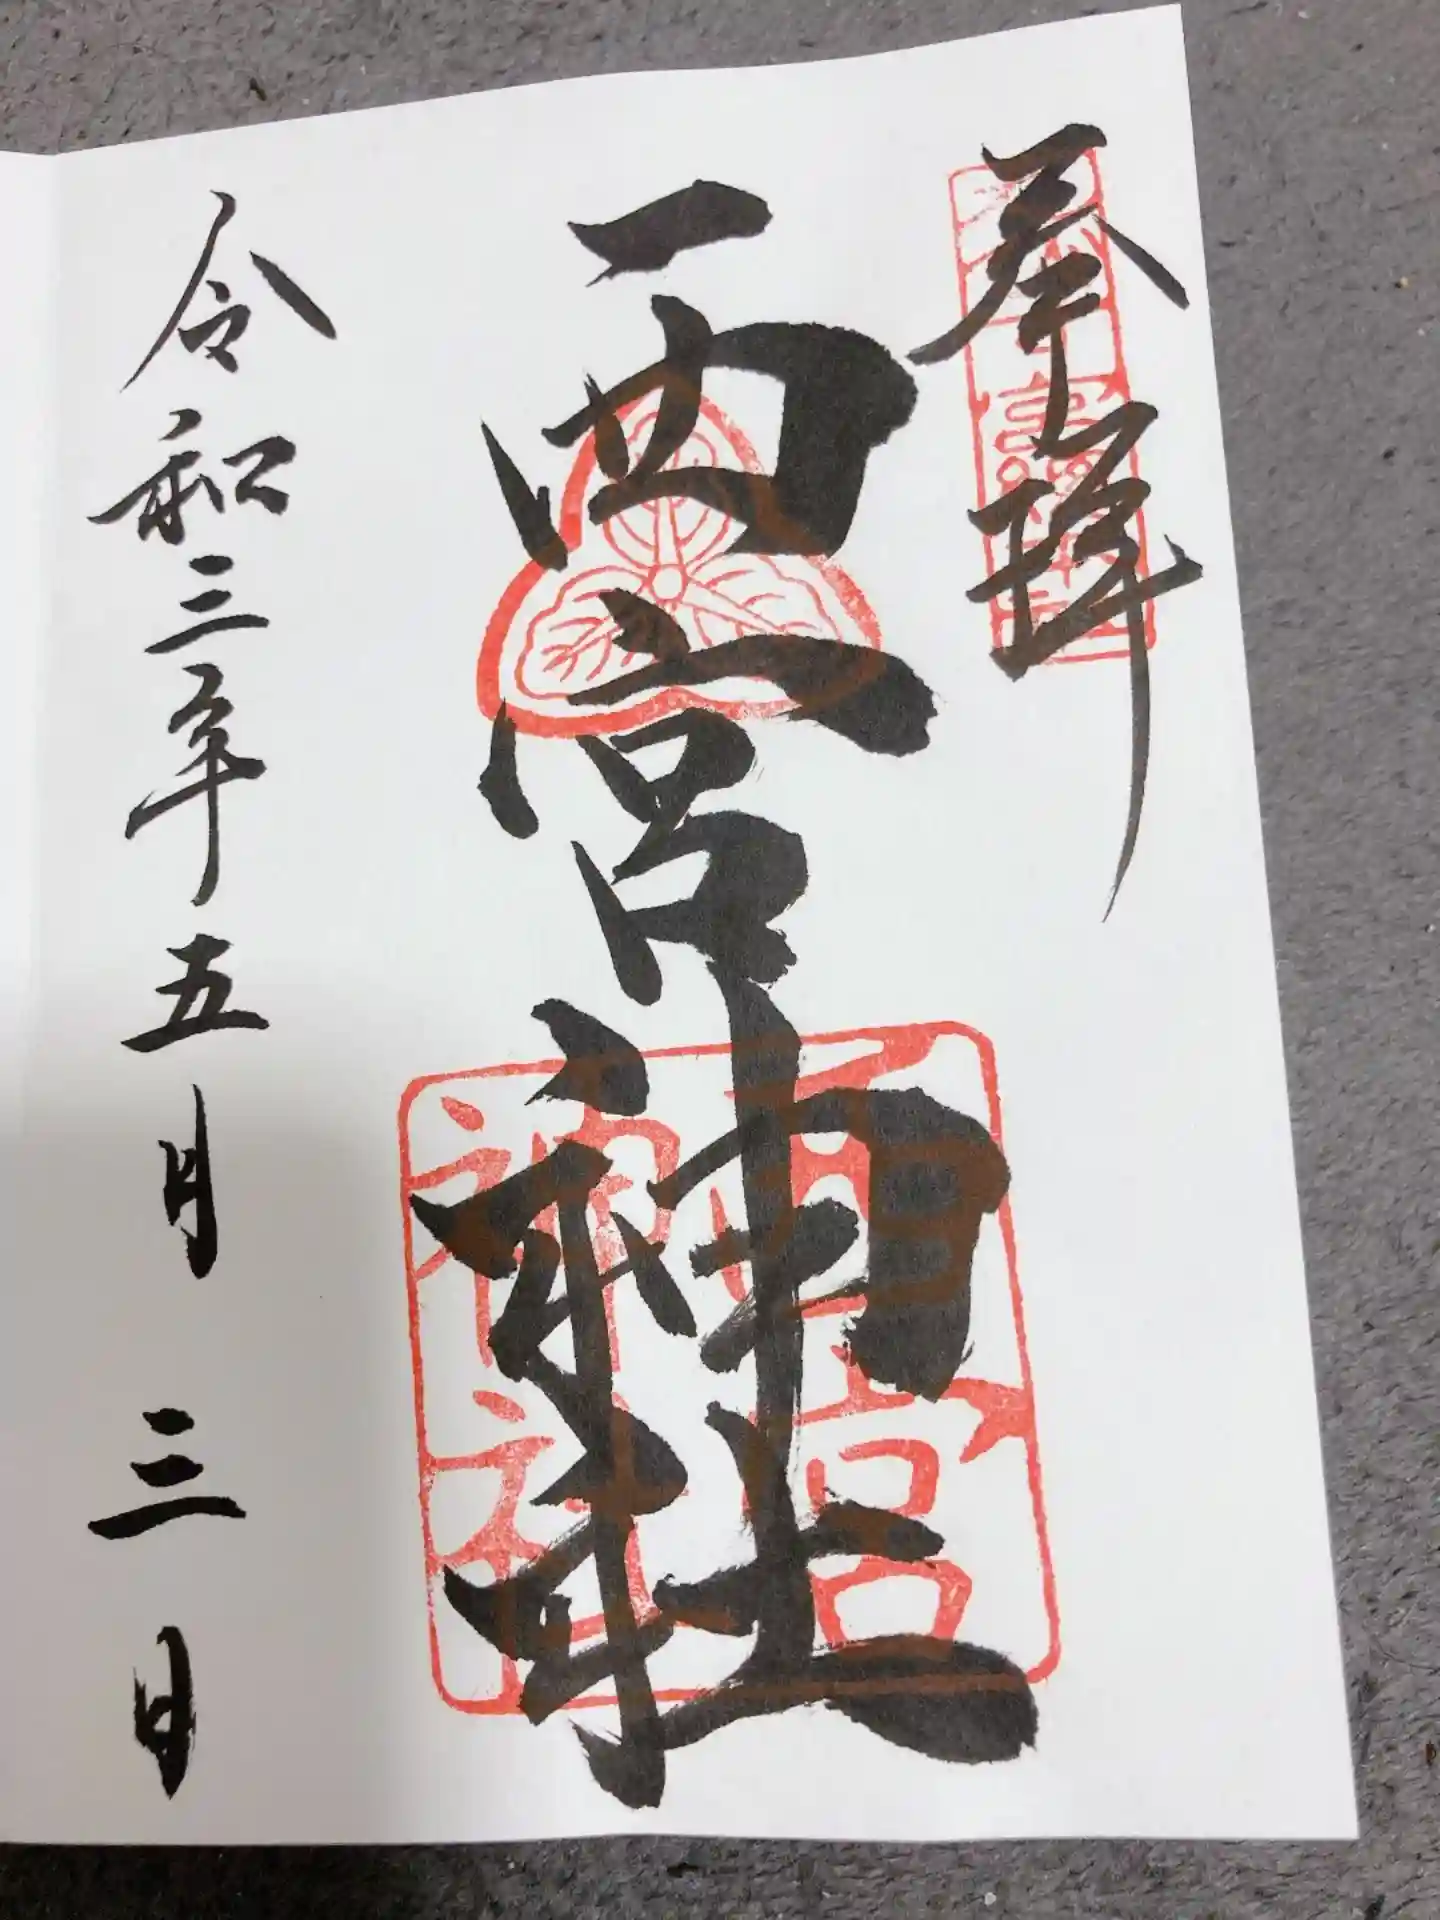 奉拝
西宮神社
西宮
神社
令和三年五月三日